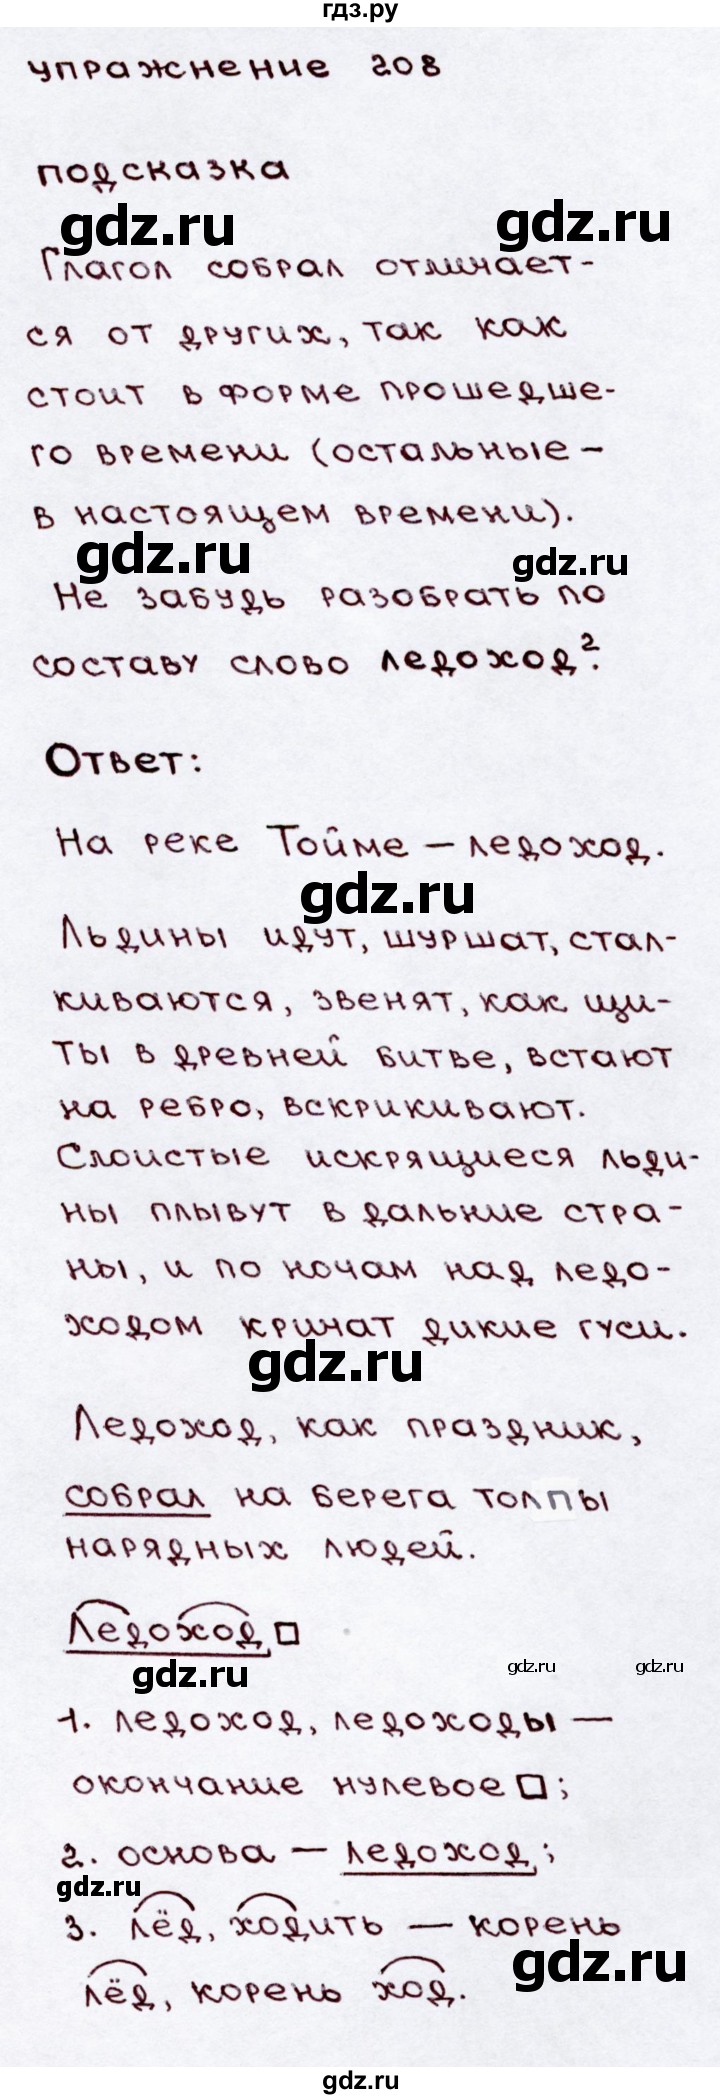 гдз.ру
упражнение 208
подсказка
gdz.ru
gdz.ru
Глагол собрал отличает-
ся от других, так как
стоит в форме прошедше-
го времени (остальные –
в настоящем времени).
gdz.ru
gdz.ru
Не забудь разобрать по
составу слово ледоход².
Ответ:
На реке Тойме – ледоход.
gdz.ru
Льдины идут, шуршат, стал-
киваются, звенят, как щи-
ты в древней битве, встают
на ребро, вскрикивают.
Слоистые искрящиеся льди-
ны плывут в дальние стра-
ны, и по ночам над ледо-
ходом кричат дикие гуси.
gdz.ru
Ледоход, как праздник,
собрал на берега толпы
нарядных людей.
Ледоход
gdz.ru
gdz.ru
gdz.ru
1. ледоход, ледоходы –
окончание нулевое □;
2. основа – ледоход;
gdz.ru
3. лёд, ходить – корень
gdz.ru
лёд, корень ход.
gdz.ru